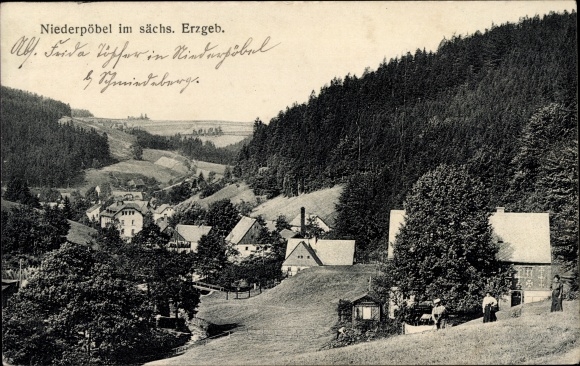 Niederpöbel im sächs. Erzgeb.
Abs. Frida Töpfer in Niederpöbel
b/ Schmiedeberg.